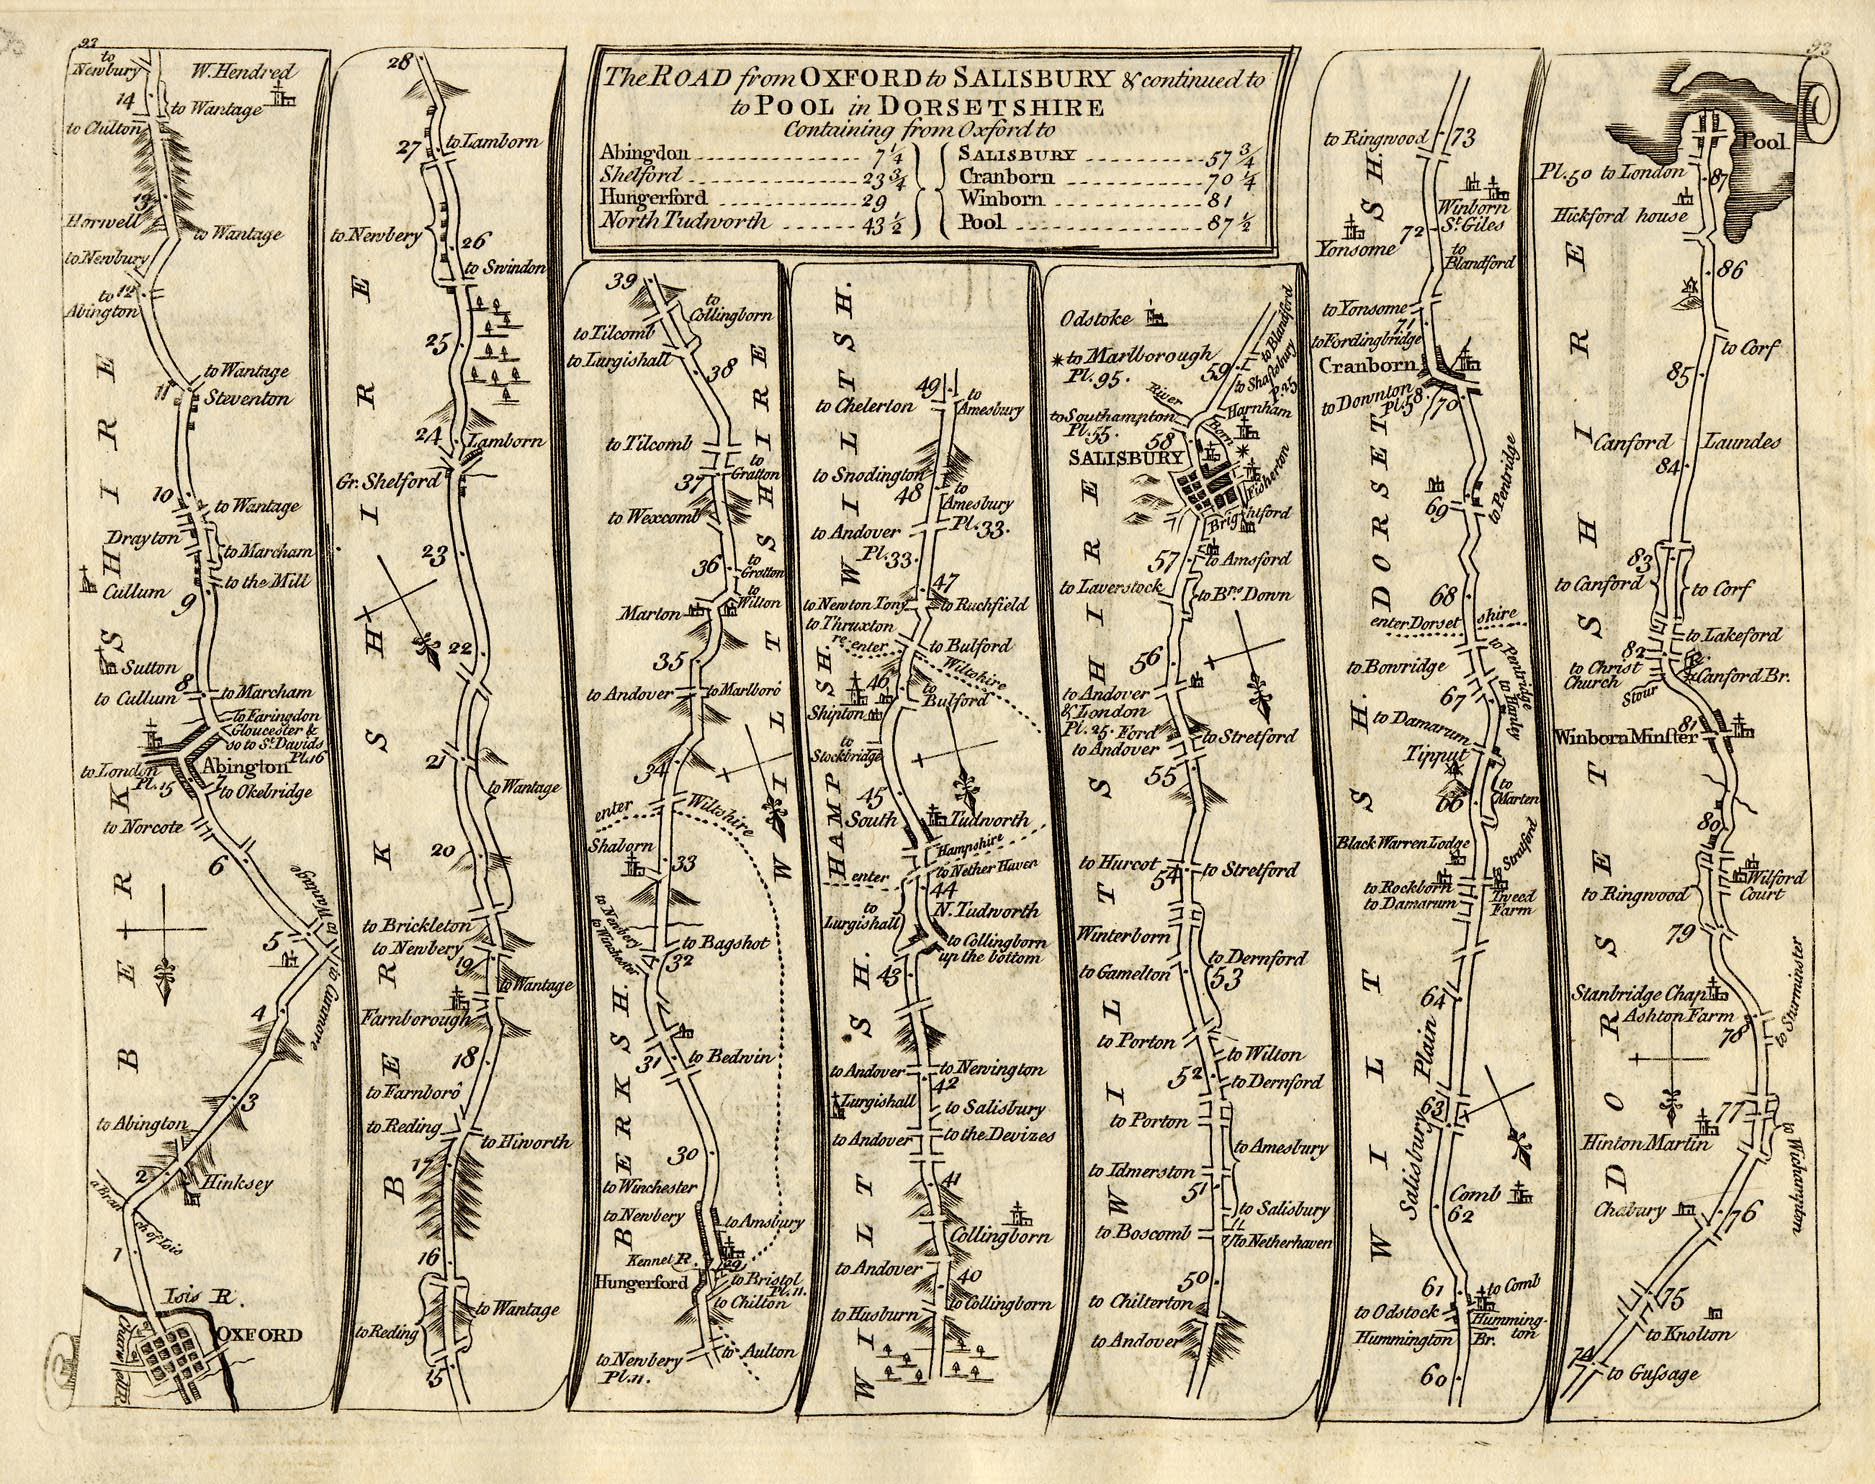 93
93
The ROAD from OXFORD to SALISBURY & continued to
to POOL in DORSETSHIRE
Containing from Oxford to
Abingdon 7 1/4
Shelford 23 3/4
Hungerford 29
North Tudworth 43 1/2
SALISBURY 57 3/4
Cranborn 70 1/4
Winborn 81
Pool 87 1/2
to Newbury
W. Hendred
14
to Wantage
to Chilton
13
Horwell
to Wantage
to Newbury
12
to Abington
to Wantage
11
Steventon
10
to Wantage
Drayton
to Marcham
to the Mill
Cullum
9
Sutton
8
to Cullum
to Marcham
to Faringdon
Gloucester &
so to St. Davids
Pl. 16
Abington
to London
Pl. 15
7
to Okebridge
to Norcote
6
to Wantage
5
to Cummore
4
3
to Abington
2
Hinksey
a Branch of Isis
1
Isis R.
OXFORD
Charwell R.
BERKSHIRE
28
27
to Lamborn
to Newbery
26
to Swindon
25
24
Lamborn
Gr. Shelford
23
22
21
to Wantage
20
to Brickleton
to Newbery
19
to Wantage
Farnborough
18
to Farnboro
to Reding
to Hiworth
17
16
to Wantage
to Reding
15
BERKSHIRE
39
to Collingborn
to Tilcomb
to Lurgishall
38
to Tilcomb
to Gratton
37
to Wexcomb
36
to Gratton
to Wilton
Marton
35
to Andover
to Marlboro
34
enter Wiltshire
Shaborn
33
to Newbery
to Winchester
to Bagshot
32
31
to Bedwin
30
to Winchester
to Newbery
to Amsbury
Kennet R.
29
Hungerford
to Bristol
Pl. 11.
to Chilton
to Newbery
Pl. 11.
to Aulton
WILTSHIRE
BERKSH.
49
to Chelerton
to Amesbury
to Snodington
48
to Amesbury
Pl. 33.
to Andover
Pl. 33.
47
to Newton Tony
to Ruchfield
to Thruxton
re-enter Wiltshire
to Bulford
46
to Bulford
Shipton
to Stockbridge
45
South Tudworth
Hampshire
enter
to Nether Haven
44
N. Tudworth
to Lurgishall
to Collingborn
up the bottom
43
to Andover
to Newington
42
Lurgishall
to Salisbury
to Andover
to the Devizes
41
Collingborn
to Andover
40
to Husburn
to Collingborn
WILTSH.
HAMPSH.
WILTSH.
Odstoke
to Blandford
to Marlborough
Pl. 95.
59
to Shaftsbury
P. 25
River
Born
Harnham
to Southampton
Pl. 55.
58
SALISBURY
Fisherton
Brightford
57
to Amsford
to Laverstock
to Bro. Down
56
to Andover
& London
Pl. 25. Ford
to Andover
to Stretford
55
to Hurcot
to Stretford
54
Winterborn
to Dernford
to Gamelton
53
to Porton
to Wilton
52
to Dernford
to Porton
to Amesbury
to Idmerston
51
to Salisbury
to Boscomb
to Netherhaven
50
to Chilterton
to Andover
WILTSHIRE
to Ringwood
73
Winborn
St. Giles
72
Yonsome
to Blandford
to Yonsome
71
to Fordingbridge
Cranborn
to Downton
Pl. 58
70
to Pentridge
69
68
enter Dorset shire
to Pentridge
to Bowridge
67
to Hanly
to Damarum
Tipput
66
to Marten
Black Warren Lodge
to Stratford
to Rockborn
to Damarum
Tweed Farm
64
Salisbury Plain
63
Comb
62
61
to Comb
to Odstock
Hummington
Hummington Br.
60
DORSETSH.
WILTSH.
Pool
Pl. 50 to London
87
Hickford house
86
to Corf
85
Canford Laundes
84
83
to Canford
to Corf
to Lakeford
82
to Christ Church
Canford Br.
Stour
81
Winborn Minster
80
Wilford Court
to Ringwood
79
Stanbridge Chap.
Ashton Farm
78
to Sturminster
77
Hinton Martin
to Wichampton
Chabury
76
75
to Knolton
74
to Gussage
DORSETSHIRE